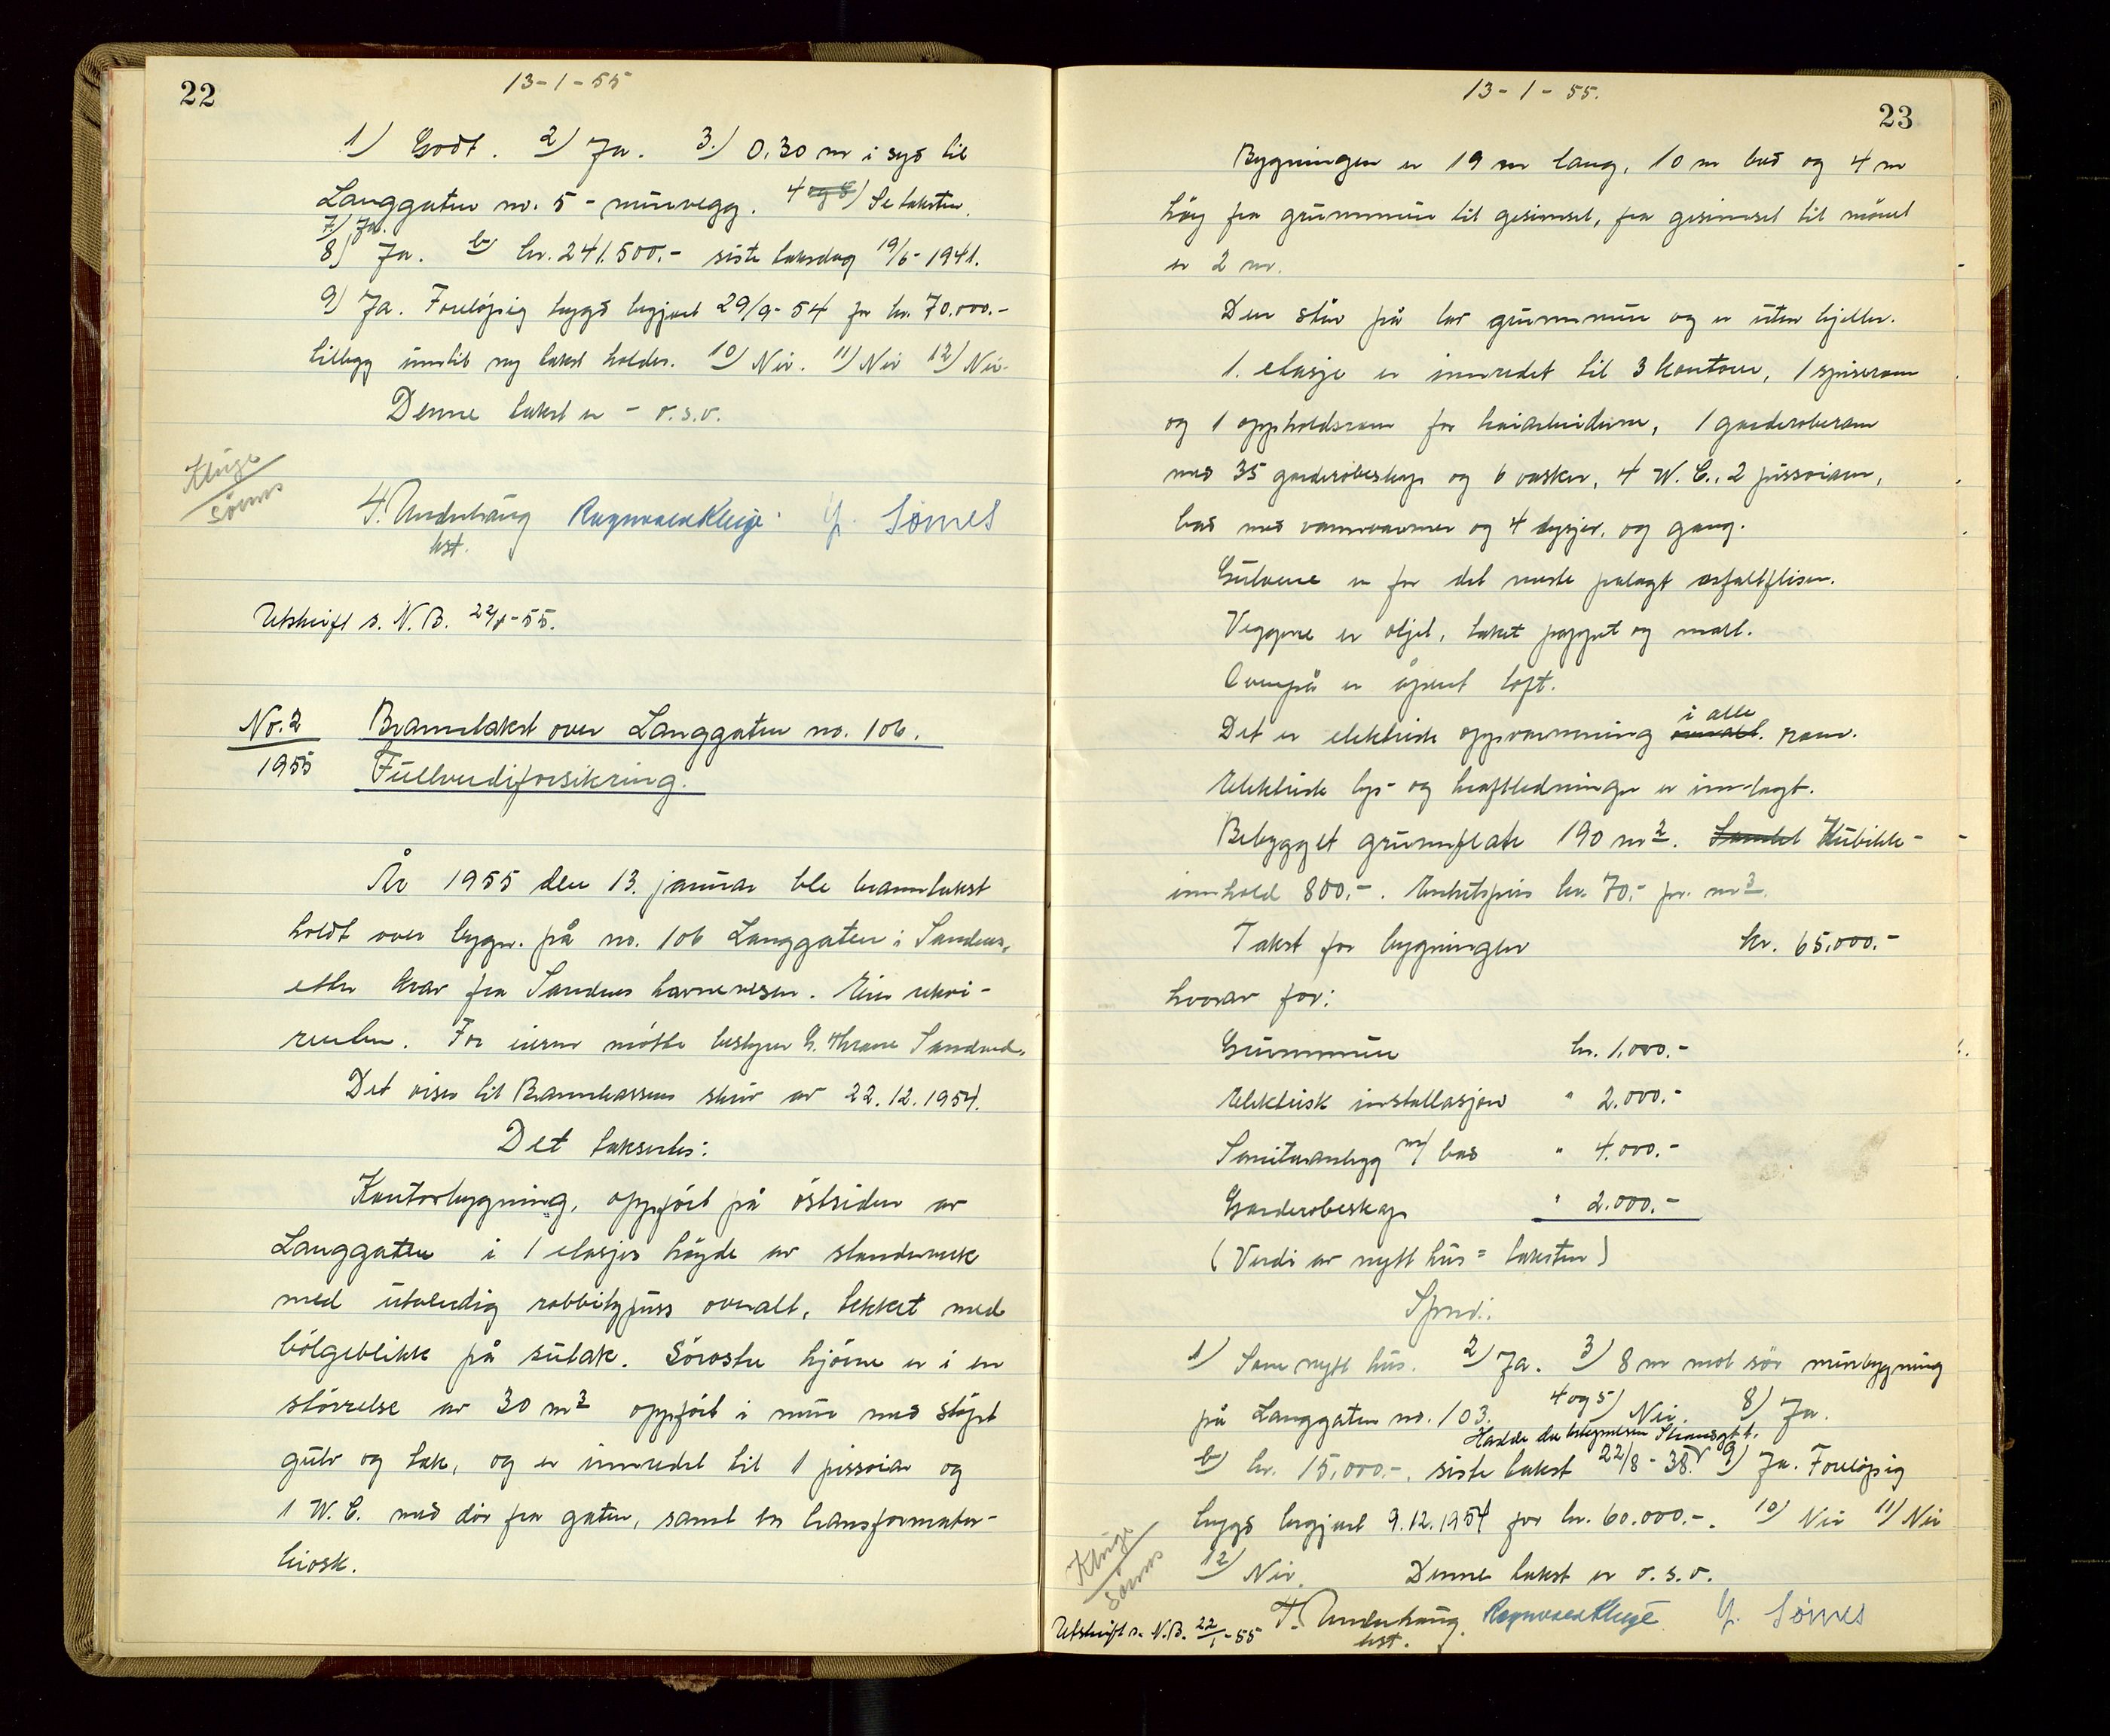 22
13-1-55
1) Godt. 2) Ja. 3.) 0.30 m i syd til
Langgaten no. 5 - murvegg. 4 og 5) Se taksten.
7) Ja.
8) Ja. b) kr. 241.500.- siste taksdag 19/6-1941.
9) Ja. Foreløpig trygd begjært 29/9-54 for kr. 70.000.-
tillegg inntil ny takst holdes. 10) Nei. 11) Nei 12) Nei.
Denne takst er - o.s.v.
Kluge
Sømes
T. Underhaug Ragnvald Kluge. Sømes
kst.
Utskrift s. N.B. 22/1-55.
No. 2 Branntakst over Langgaten no. 106.
1955 Fullverdiforsikring.
År 1955 den 13. januar ble branntakst
holdt over bygn. på no. 106 Langgaten i Sandnes,
etter krav fra Sandnes havnevesen. Eier rekvi-
renten. For eieren møtte bestyrer G. Thrane Sandved.
Det vises til Brannkassens skriv av 22.12.1954.
Det takseres:
Kontorbygning, oppført på østsiden av
Langgaten i 1 etasjes høyde av standerverk
med utvendig rabbitzpuss overalt, tekket med
bølgeblikk på sutak. Sørøstre hjørne er i en
størrelse av 30 m2 oppført i mur med støpt
gulv og tak, og er innredet til 1 pissoiar og
1 W.C. med dør fra gaten, samt en transformator-
kiosk.
13-1-55.
23
Bygningen er 19 m lang, 10 m bred og 4 m
høy fra grunnmur til gesimset, fra gesimset til mønet
er 2 m.
Den står på lav grunnmur og er uten kjeller.
1. etasje er innredet til 3 kontorer, 1 spiserom
og 1 oppholdsrom for kaiarbeiderne, 1 garderoberom
med 35 garderobeskap og 6 vasker, 4 W.C., 2 pissoiarer,
bad med vannvarmer og 4 dysjer, og gang.
Gulvene er for det meste palagt asfaltfliser.
Veggene er oljet, taket pappet og malt.
Ovenpå er åpent loft.
Det er elektrisk oppvarmning overalt. i alle rom.
Elektrisk lys- og kraftledninger er innlagt.
Bebygget grunnflate 190 m2. Samlet Kubikk-
innhold 800.-. Enhetspris kr. 70.- pr. m3.
Takst for bygningen kr. 65.000.-
hvorav for:
Grunnmur kr. 1.000.-
Elektrisk installasjon " 2.000.-
Sanitæranlegg m/ bad " 4.000.-
Garderobeskap " 2.000.-
(Verdi av nytt hus = taksten)
Spm.:
1) Som nytt hus. 2) Ja. 3) 8 m mot sør murbygning
på Langgaten no. 103. 4 og 5) Nei. 8) Ja.
Hadde da betegnelsen Strandgt.
b) kr. 15.000.-, siste takst 22/8-38. 9) Ja. Foreløpig
trygd begjært 9.12.1954 for kr. 60.000.-. 10) Nei 11) Nei
12) Nei. Denne takst er o.s.v.
Kluge
Sømes
T. Underhaug. Ragnvald Kluge Sømes
kst.
Utskrift s. N.B. 22/1-55